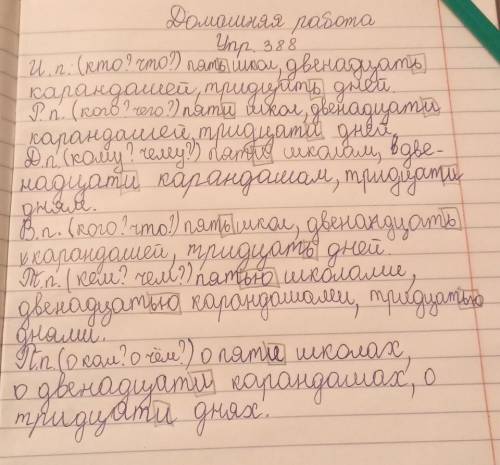 Домашняя работа
Упр. 388
И.п.: (кто? что?) пять школ, двенадцать
карандашей, тридцать дней.
Р.п.: (кого? чего?) пяти школ, двенадцати
карандашей, тридцати дней.
Д.п.: (кому? чему?) пяти школам, две-
надцати карандашам, тридцати
дням.
В.п.: (кого? что?) пять школ, двенандцать
карандашей, тридцать дней.
Т.п.: (кем? чем?) пятью школами,
двенадцатью карандашами, тридцатью
днями.
П.п. (о ком? о чём?) о пяти школах,
о двенадцати карандашах, о
тридцати днях.